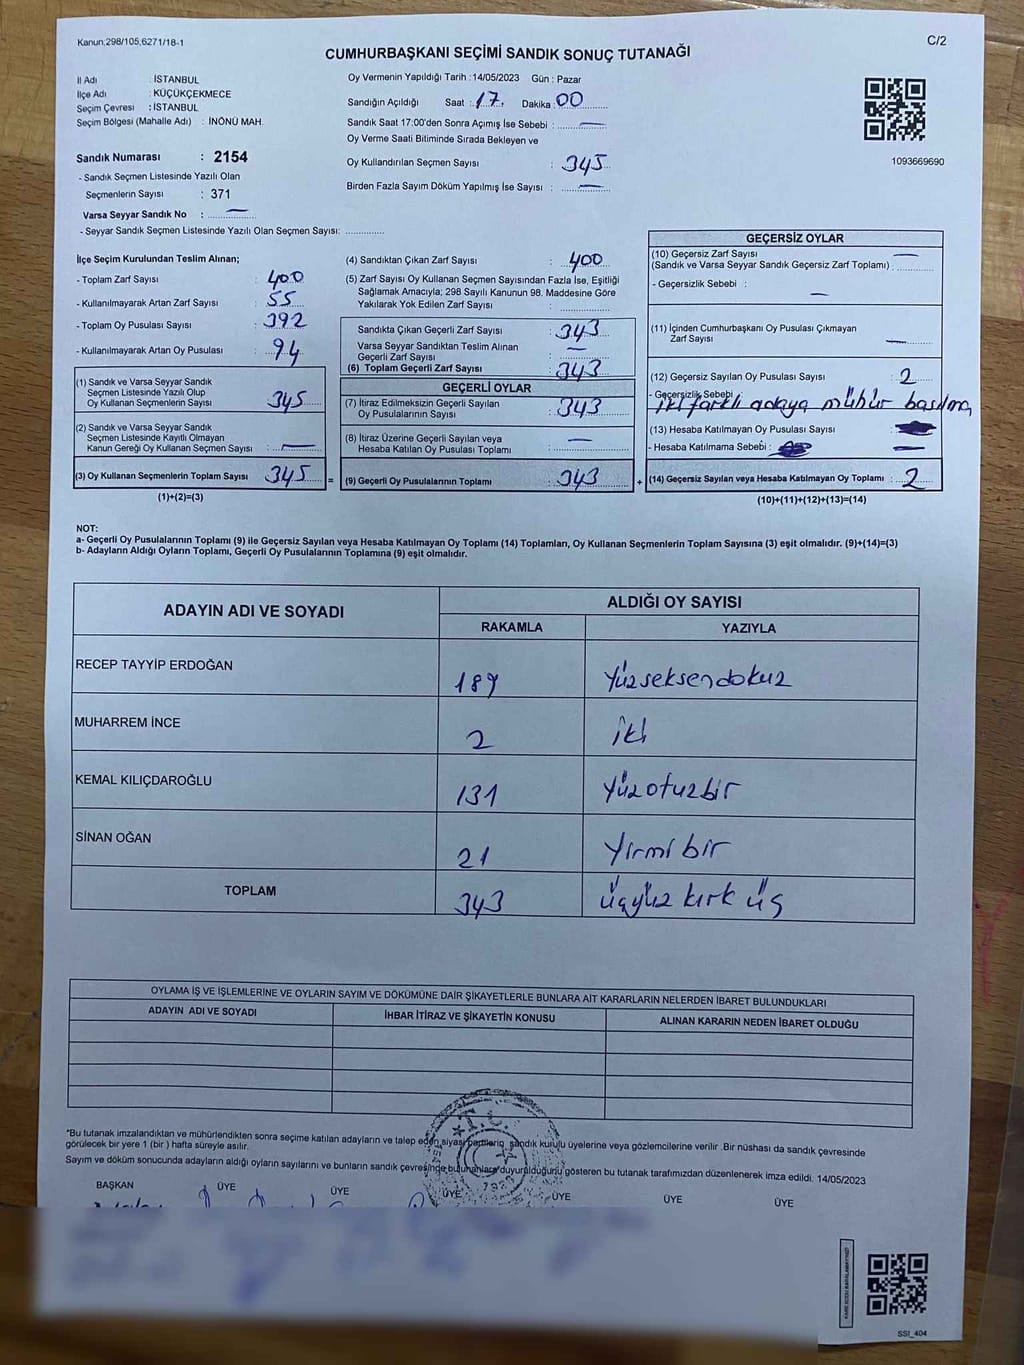 Kanun,298/105,6271/18-1
C/2
CUMHURBAŞKANI SEÇİMİ SANDIK SONUÇ TUTANAĞI
İl Adı : İSTANBUL
İlçe Adı : KÜÇÜKÇEKMECE
Seçim Çevresi : İSTANBUL
Seçim Bölgesi (Mahalle Adı) : İNÖNÜ MAH.
Sandık Numarası : 2154
- Sandık Seçmen Listesinde Yazılı Olan
Seçmenlerin Sayısı : 371
Varsa Seyyar Sandık No : —
- Seyyar Sandık Seçmen Listesinde Yazılı Olan Seçmen Sayısı:
Oy Vermenin Yapıldığı Tarih :14/05/2023 Gün : Pazar
Sandığın Açıldığı Saat : 17. Dakika : 00
Sandık Saat 17:00'den Sonra Açımış İse Sebebi : —
Oy Verme Saati Bitiminde Sırada Bekleyen ve
Oy Kullandırılan Seçmen Sayısı : 345
Birden Fazla Sayım Döküm Yapılmış İse Sayısı : —
1093669690
İlçe Seçim Kurulundan Teslim Alınan;
- Toplam Zarf Sayısı : 400
- Kullanılmayarak Artan Zarf Sayısı : 55
- Toplam Oy Pusulası Sayısı : 392
- Kullanılmayarak Artan Oy Pusulası : 94
(1) Sandık ve Varsa Seyyar Sandık
Seçmen Listesinde Yazılı Olup
Oy Kullanan Seçmenlerin Sayısı : 345
(2) Sandık ve Varsa Seyyar Sandık
Seçmen Listesinde Kayıtlı Olmayan
Kanun Gereği Oy Kullanan Seçmen Sayısı : —
(3) Oy Kullanan Seçmenlerin Toplam Sayısı : 345 =
(1)+(2)=(3)
(4) Sandıktan Çıkan Zarf Sayısı : 400
(5) Zarf Sayısı Oy Kullanan Seçmen Sayısından Fazla İse, Eşitliği
Sağlamak Amacıyla; 298 Sayılı Kanunun 98. Maddesine Göre
Yakılarak Yok Edilen Zarf Sayısı :
Sandıkta Çıkan Geçerli Zarf Sayısı : 343
Varsa Seyyar Sandıktan Teslim Alınan
Geçerli Zarf Sayısı : —
(6) Toplam Geçerli Zarf Sayısı : 343
GEÇERLİ OYLAR
(7) İtiraz Edilmeksizin Geçerli Sayılan
Oy Pusulalarının Sayısı : 343
(8) İtiraz Üzerine Geçerli Sayılan veya
Hesaba Katılan Oy Pusulası Toplamı : —
(9) Geçerli Oy Pusulalarının Toplamı : 343 +
GEÇERSİZ OYLAR
(10) Geçersiz Zarf Sayısı —
(Sandık ve Varsa Seyyar Sandık Geçersiz Zarf Toplamı) :
- Geçersizlik Sebebi : —
(11) İçinden Cumhurbaşkanı Oy Pusulası Çıkmayan
Zarf Sayısı : —
(12) Geçersiz Sayılan Oy Pusulası Sayısı : 2
- Geçersizlik Sebebi : iki farklı adaya mühür basılma
(13) Hesaba Katılmayan Oy Pusulası Sayısı :
- Hesaba Katılmama Sebebi : —
(14) Geçersiz Sayılan veya Hesaba Katılmayan Oy Toplamı : 2
(10)+(11)+(12)+(13)=(14)
NOT:
a- Geçerli Oy Pusulalarının Toplamı (9) ile Geçersiz Sayılan veya Hesaba Katılmayan Oy Toplamı (14) Toplamları, Oy Kullanan Seçmenlerin Toplam Sayısına (3) eşit olmalıdır. (9)+(14)=(3)
b- Adayların Aldığı Oyların Toplamı, Geçerli Oy Pusulalarının Toplamına (9) eşit olmalıdır.
ADAYIN ADI VE SOYADI
ALDIĞI OY SAYISI
RAKAMLA YAZIYLA
RECEP TAYYİP ERDOĞAN 189 Yüzseksendokuz
MUHARREM İNCE 2 iki
KEMAL KILIÇDAROĞLU 131 Yüzotuzbir
SİNAN OĞAN 21 Yirmi bir
TOPLAM 343 üçyüz kırk üç
OYLAMA İŞ VE İŞLEMLERİNE VE OYLARIN SAYIM VE DÖKÜMÜNE DAİR ŞİKAYETLERLE BUNLARA AİT KARARLARIN NELERDEN İBARET BULUNDUKLARI
ADAYIN ADI VE SOYADI İHBAR İTİRAZ VE ŞİKAYETİN KONUSU ALINAN KARARIN NEDEN İBARET OLDUĞU
*Bu tutanak imzalandıktan ve mühürlendikten sonra seçime katılan adayların ve talep eden siyasi partilerin, sandık kurulu üyelerine veya gözlemcilerine verilir .Bir nüshası da sandık çevresinde
görülecek bir yere 1 (bir ) hafta süreyle asılır.
Sayım ve döküm sonucunda adayların aldığı oyların sayılarını ve bunların sandık çevresinde bulunanlara duyurulduğunu gösteren bu tutanak tarafımızdan düzenlenerek imza edildi. 14/05/2023
T.C.
BAŞKAN ÜYE ÜYE ÜYE ÜYE ÜYE ÜYE
SSI_404